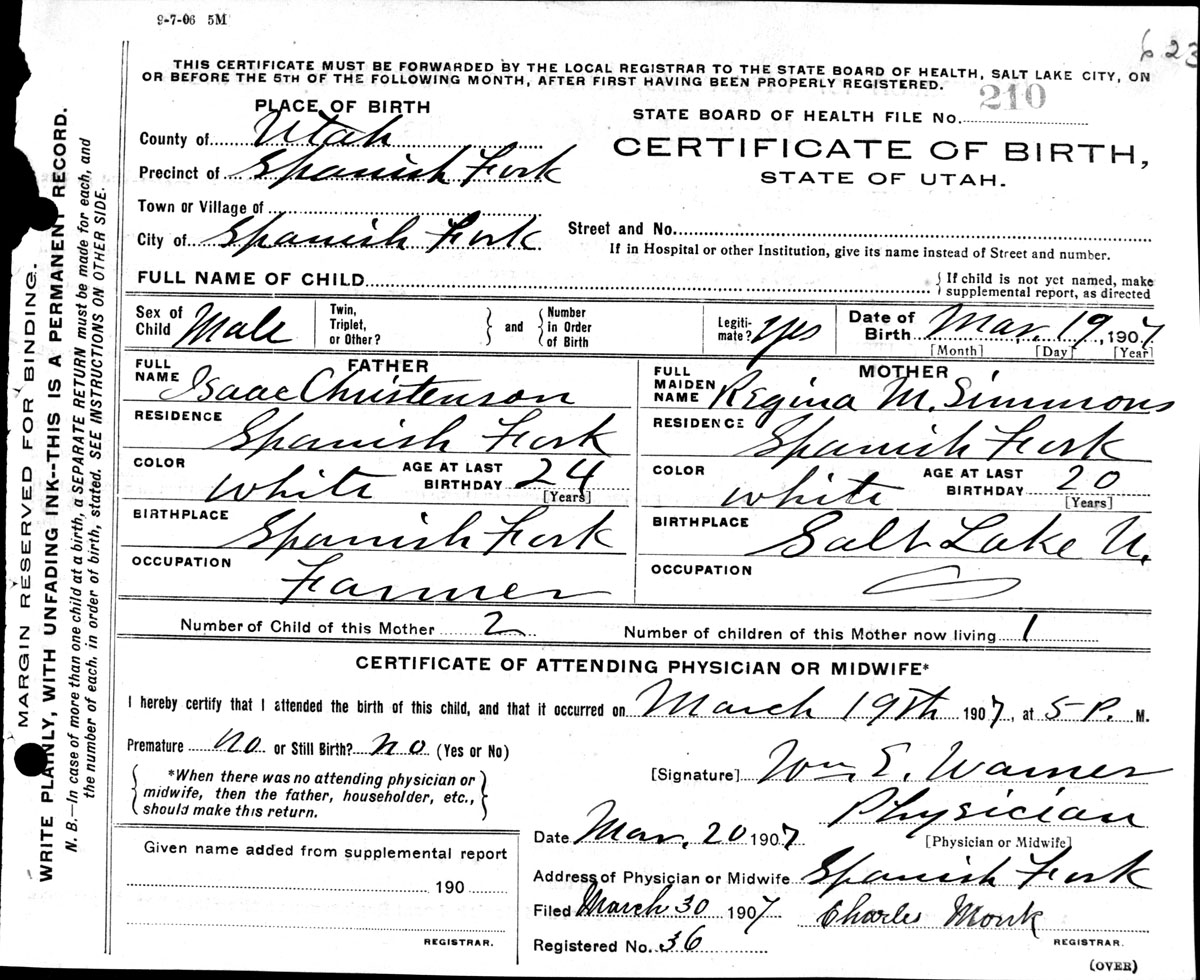 9-7-06 5M
623
THIS CERTIFICATE MUST BE FORWARDED BY THE LOCAL REGISTRAR TO THE STATE BOARD OF HEALTH, SALT LAKE CITY, ON
OR BEFORE THE 5TH OF THE FOLLOWING MONTH, AFTER FIRST HAVING BEEN PROPERLY REGISTERED.
210
PLACE OF BIRTH
STATE BOARD OF HEALTH FILE No.
County of Utah
CERTIFICATE OF BIRTH,
Precinct of Spanish Fork
STATE OF UTAH.
Town or Village of
City of Spanish Fork
Street and No.
If in Hospital or other Institution, give its name instead of Street and number.
FULL NAME OF CHILD
{ If child is not yet named, make
supplemental report, as directed
Sex of Child Male
Twin, Triplet, or Other?
} and {
Number in Order of Birth
Legiti-mate? Yes
Date of Birth Mar. 19, 1907
[Month] [Day] [Year]
FATHER
FULL NAME Isaac Christenson
RESIDENCE Spanish Fork
COLOR white AGE AT LAST BIRTHDAY 24 [Years]
BIRTHPLACE Spanish Fork
OCCUPATION Farmer
MOTHER
FULL MAIDEN NAME Regina M. Simmons
RESIDENCE Spanish Fork
COLOR white AGE AT LAST BIRTHDAY 20 [Years]
BIRTHPLACE Salt Lake U.
OCCUPATION
Number of Child of this Mother 2 Number of children of this Mother now living 1
CERTIFICATE OF ATTENDING PHYSICIAN OR MIDWIFE*
I hereby certify that I attended the birth of this child, and that it occurred on March 19th 1907, at 5 P. M.
Premature no or Still Birth? no (Yes or No)
{ *When there was no attending physician or
midwife, then the father, householder, etc.,
should make this return. }
[Signature] Wm E. Warner
Physician
[Physician or Midwife]
Date Mar. 20 1907
Address of Physician or Midwife Spanish Fork
Filed March 30 1907 Charles Monk
REGISTRAR.
Registered No. 36
Given name added from supplemental report
190
REGISTRAR.
(OVER)
MARGIN RESERVED FOR BINDING.
WRITE PLAINLY, WITH UNFADING INK--THIS IS A PERMANENT RECORD.
N. B.—In case of more than one child at a birth, a SEPARATE RETURN must be made for each, and
the number of each, in order of birth, stated. SEE INSTRUCTIONS ON OTHER SIDE.